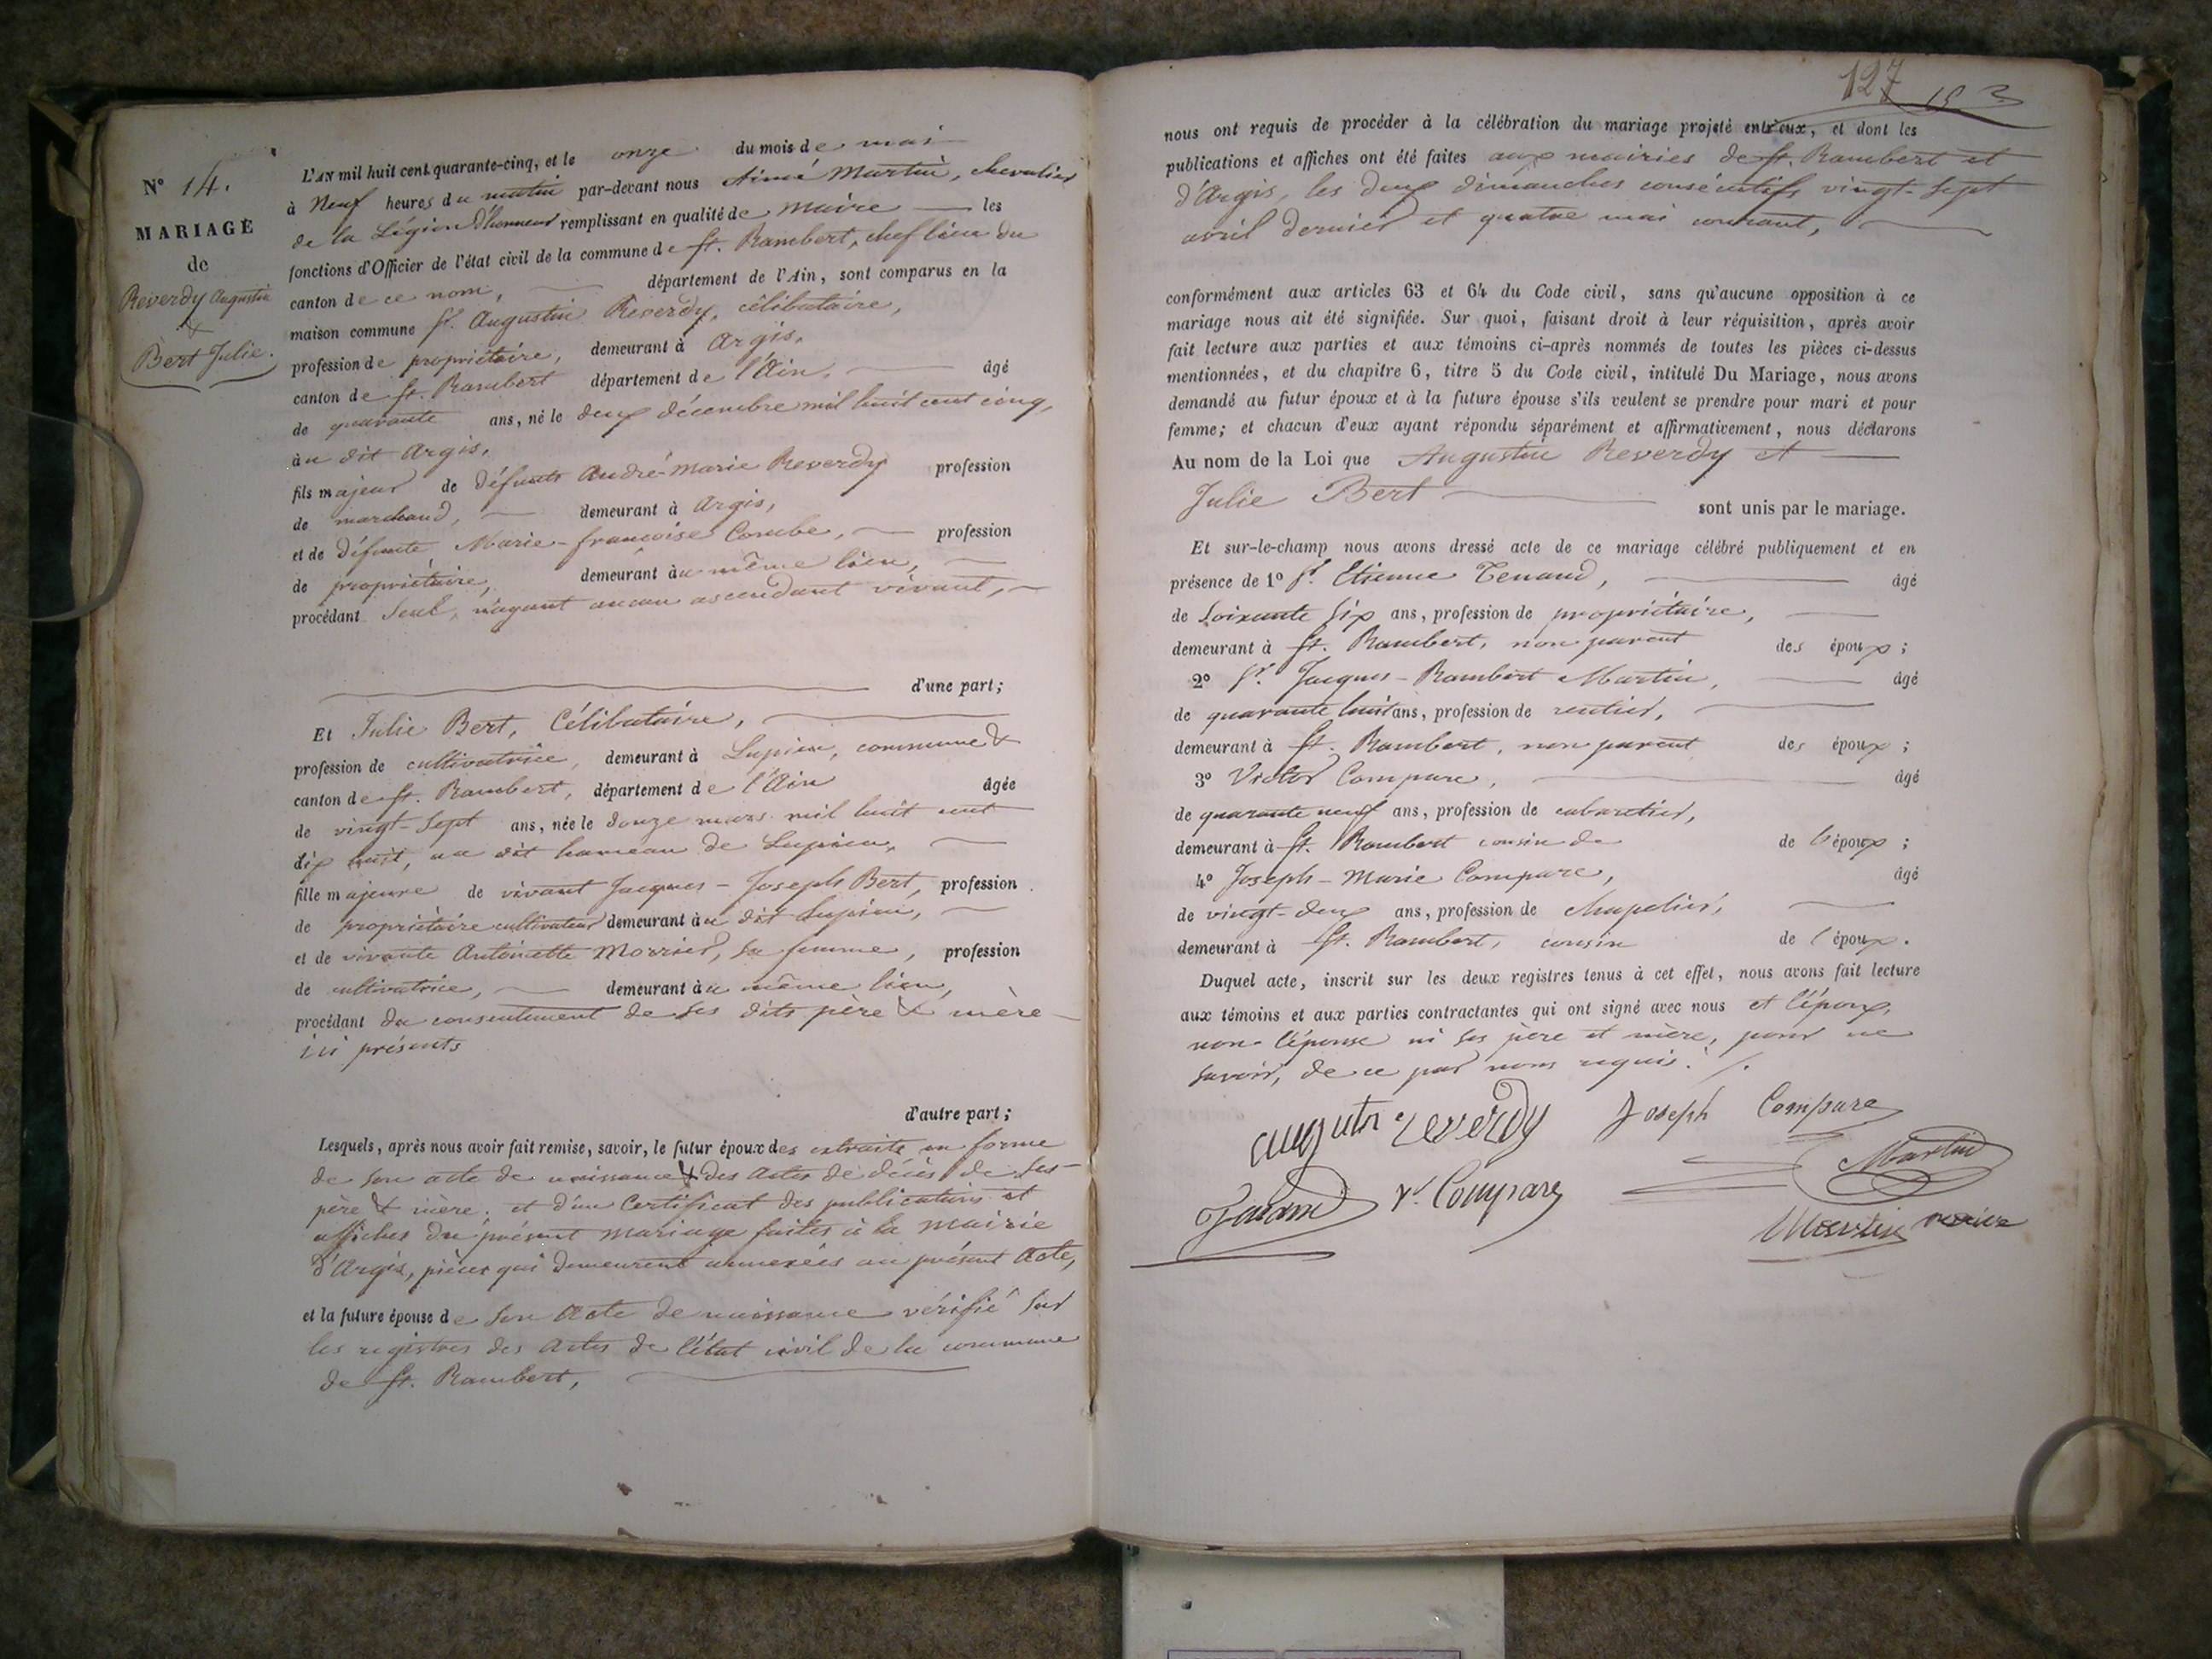 N° 14.
MARIAGE
de
Reverdy Augustin
&
Bert Julie.
L'AN mil huit cent quarante-cinq, et le onze du mois de mai
à Neuf heures du matin par-devant nous Aimé Martin, chevalier
de la Légion d'honneur remplissant en qualité de maire les
fonctions d'Officier de l'état civil de la commune de St. Rambert, chef lieu du
canton de ce nom, département de l'Ain, sont comparus en la
maison commune Sr. Augustin Reverdy, célibataire,
profession de propriétaire, demeurant à Argis,
canton de St. Rambert département de l'Ain, âgé
de quarante ans, né le deux décembre mil huit cent cinq,
au dit Argis,
fils majeur de défunts André-Marie Reverdy profession
de marchand, demeurant à Argis,
et de défunte Marie-françoise Combe, profession
de propriétaire, demeurant au même lieu,
procédant seul, n'ayant aucun ascendant vivant,
d'une part;
Et Julie Bert, Célibataire,
profession de cultivatrice, demeurant à Lupieu, commune &
canton de St. Rambert, département de l'Ain âgée
de vingt-sept ans, née le douze mars mil huit cent
dix huit, au dit hameau de Lupieu,
fille majeure de vivant Jacques-Joseph Bert, profession
de propriétaire cultivateur demeurant au dit Lupieu,
et de vivante Antoinette Morrier, sa femme, profession
de cultivatrice, demeurant au même lieu,
procédant du consentement de ses dits père & mère
ici présents
d'autre part;
Lesquels, après nous avoir fait remise, savoir, le futur époux des extraits en forme
de son acte de naissance & des actes de décès de ses
père & mère, et d'un Certificat des publications et
affiches du présent mariage faites à la Mairie
d'Argis, pièces qui demeurent annexées au présent Acte,
et la future épouse de son Acte de naissance vérifié sur
les registres des Actes de l'état civil de la commune
de St. Rambert,
127
nous ont requis de procéder à la célébration du mariage projeté entr'eux, et dont les
publications et affiches ont été faites aux mairies de St. Rambert et
d'Argis, les deux dimanches consécutifs vingt-sept
avril dernier et quatre mai courant,
conformément aux articles 63 et 64 du Code civil, sans qu'aucune opposition à ce
mariage nous ait été signifiée. Sur quoi, faisant droit à leur réquisition, après avoir
fait lecture aux parties et aux témoins ci-après nommés de toutes les pièces ci-dessus
mentionnées, et du chapitre 6, titre 5 du Code civil, intitulé Du Mariage, nous avons
demandé au futur époux et à la future épouse s'ils veulent se prendre pour mari et pour
femme; et chacun d'eux ayant répondu séparément et affirmativement, nous déclarons
Au nom de la Loi que Augustin Reverdy et
Julie Bert sont unis par le mariage.
Et sur-le-champ nous avons dressé acte de ce mariage célébré publiquement et en
présence de 1° Sr. Etienne Tenand, âgé
de soixante six ans, profession de propriétaire,
demeurant à St. Rambert, non parent des époux;
2° Sr. Jacques-Rambert Martin, âgé
de quarante huit ans, profession de rentier,
demeurant à St. Rambert, non parent des époux;
3° Victor Compare, âgé
de quarante neuf ans, profession de cabaretier,
demeurant à St. Rambert cousin de de l'époux;
4° Joseph-Marie Compare, âgé
de vingt-deux ans, profession de chapelier,
demeurant à St. Rambert, cousin de l'époux.
Duquel acte, inscrit sur les deux registres tenus à cet effet, nous avons fait lecture
aux témoins et aux parties contractantes qui ont signé avec nous et l'époux,
non l'épouse ni ses père et mère, pour ne
savoir, de ce par nous requis.
Reverdy Joseph Compare
Martin
Tenand Vr. Compare
Martin maire